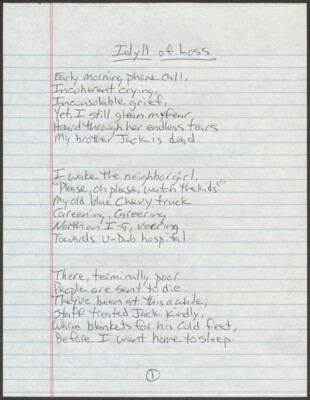 Idyll of Loss
Early morning phone call,
Incoherent crying,
Inconsolable grief,
Yet, I still glean my fear,
Heard through her endless tears
My brother Jack is dead.
I wake the neighbor girl,
"Please, oh please, watch the kids!"
My old blue Chevy truck
Careening, Careering
North on I-5, veering
Towards U-Dub hospital
There, terminally poor
People are sent to die.
They've been at this awhile;
Staff treated Jack kindly,
Warm blankets for his cold feet,
Before I went home to sleep.
1